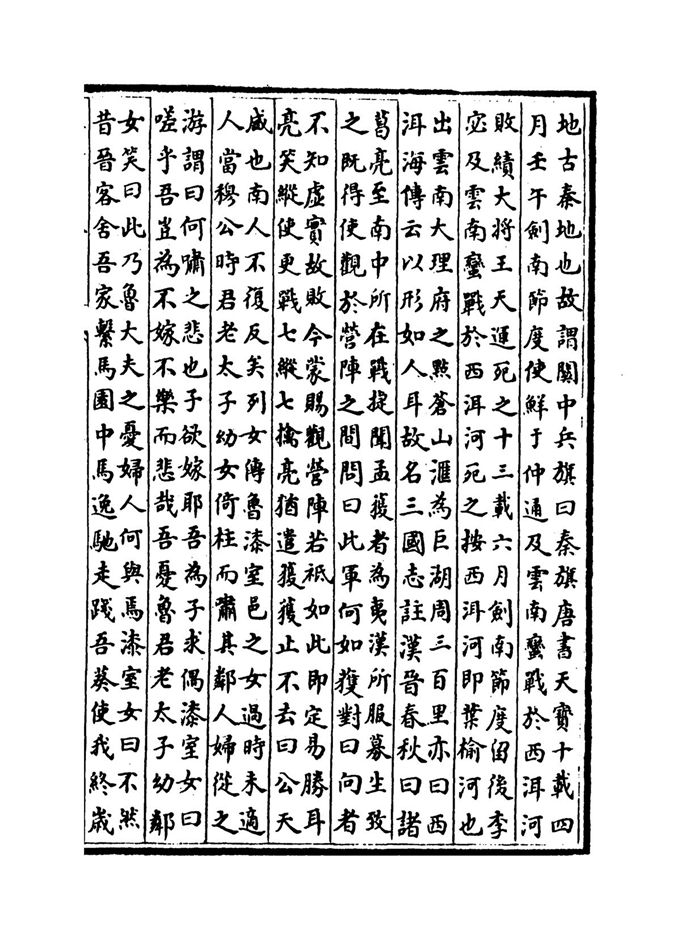 地古秦地也故謂關中兵旗曰秦旗唐書天寳十載四
月壬午劍南節度使鮮于仲通及雲南蠻戰於西洱河
敗績大將王天運死之十三載六月劍南節度留後李
宓及雲南蠻戰於西洱河死之按西洱河即葉榆河也
出雲南大理府之㸃蒼山滙為巨湖周三百里亦曰西
洱海傳云以形如人耳故名三國志註漢晉春秋曰諸
葛亮至南中所在戰捷聞孟獲者為夷漢所服募生致
之既得使觀於營陣之間問曰此軍何如獲對曰向者
不知虛實故敗今蒙賜觀營陣若祇如此即定易勝耳
亮笑縱使更戰七縱七擒亮猶遣獲獲止不去曰公天
威也南人不復反矣列女傳魯漆室邑之女過時未適
人當穆公時君老太子幼女倚柱而嘯其鄰人婦從之
游謂曰何嘯之悲也子欲嫁耶吾為子求偶漆室女曰
嗟乎吾豈為不嫁不樂而悲哉吾憂魯君老太子幼鄰
女笑曰此乃魯大夫之憂婦人何與焉漆室女曰不然
昔晉客舍吾家繫馬園中馬逸馳走踐吾葵使我終歲